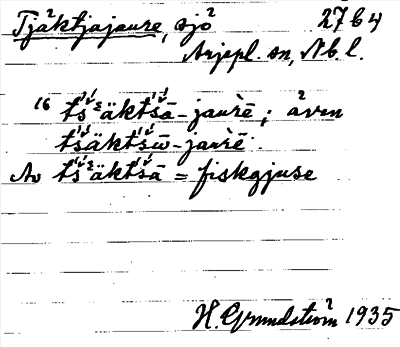 Tjäktjajaure, sjö 27 b 4
Arjepl. sn, Nb. l.
16 tś́äktśā-jaurē; även
tśäktśω̄-jaurē.
Av tś́äktśā = fiskgjuse
H. Grundström 1935